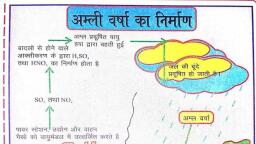 अम्ली वर्षा का निर्माण
अम्ल प्रदूषित वायु
हवा द्वारा बहती हुई
बादलों से होने वाले
आक्सीकरण के द्वारा H₂SO₄
तथा HNO₃ का निर्माण होता है
जल की बूंदे
प्रदूषित हो जाती है।
SO₂ तथा NO₂
अम्ल वर्षा
पावर स्टेशन, उद्योग और वाहन
गैसो को वायुमंडल में उत्सर्जित करते है